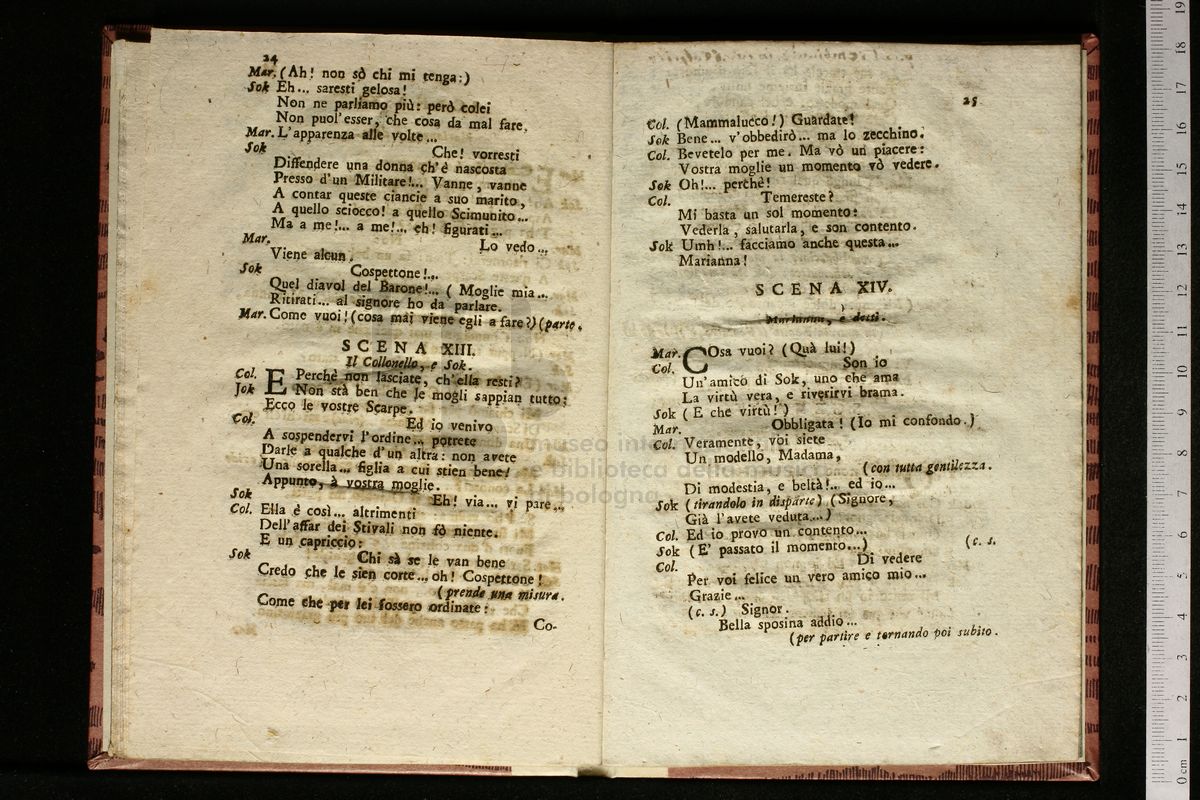 24
Mar. (Ah! non sò chi mi tenga:)
Sok Eh... saresti gelosa!
Non ne parliamo più: però colei
Non puol'esser, che cosa da mal fare.
Mar. L'apparenza alle volte...
Sok Che! vorresti
Diffendere una donna ch'è nascosta
Presso d'un Militare!... Vanne, vanne
A contar queste ciancie a suo marito,
A quello sciocco! a quello Scimunito...
Ma a me!... a me!... eh! figurati...
Mar. Lo vedo...
Viene alcun.
Sok Cospettone!...
Quel diavol del Barone!... ( Moglie mia...
Ritirati... al signore ho da parlare.
Mar. Come vuoi! (cosa mai viene egli a fare?) (parte.
SCENA XIII.
Il Collonello, e Sok.
Col. E Perchè non lasciate, ch'ella resti?
Sok Non stà ben che le mogli sappian tutto;
Ecco le vostre Scarpe.
Col. Ed io venivo
A sospendervi l'ordine... potrete
Darle a qualche d'un altra: non avete
Una sorella... figlia a cui stien bene!
Appunto, à vostra moglie.
Sok Eh! via... vi pare...
Col. Ella è così... altrimenti
Dell'affar dei Stivali non fò niente.
E un capriccio:
Sok Chi sà se le van bene
Credo che le sien corte... oh! Cospettone!
( prende una misura.
Come che per lei fossero ordinate:
Co-
25
Col. (Mammalucco!) Guardate!
Sok Bene... v'obbedirò... ma lo zecchino.
Col. Bevetelo per me. Ma vò un piacere:
Vostra moglie un momento vò vedere.
Sok Oh!... perchè!
Col. Temereste?
Mi basta un sol momento:
Vederla, salutarla, e son contento.
Sok Umh!... facciamo anche questa...
Marianna!
SCENA XIV.
Marianna, e detti.
Mar. COsa vuoi? (Quà lui!)
Col. Son io
Un'amico di Sok, uno che ama
La virtù vera, e riverirvi brama.
Sok ( E che virtù! )
Mar. Obbligata! (Io mi confondo.)
Col. Veramente, voi siete
Un modello, Madama,
(con tutta gentilezza.
Di modestia, e beltà!.. ed io...
Sok (tirandolo in disparte) (Signore,
Già l'avete veduta...)
Col. Ed io provo un contento...
Sok (E' passato il momento...) (c. s.
Col. Di vedere
Per voi felice un vero amico mio...
Grazie...
(c. s.) Signor.
Bella sposina addio...
(per partire e tornando poi subito.
museo
e biblioteca della musica
di bologna
0 cm 1 2 3 4 5 6 7 8 9 10 11 12 13 14 15 16 17 18 19